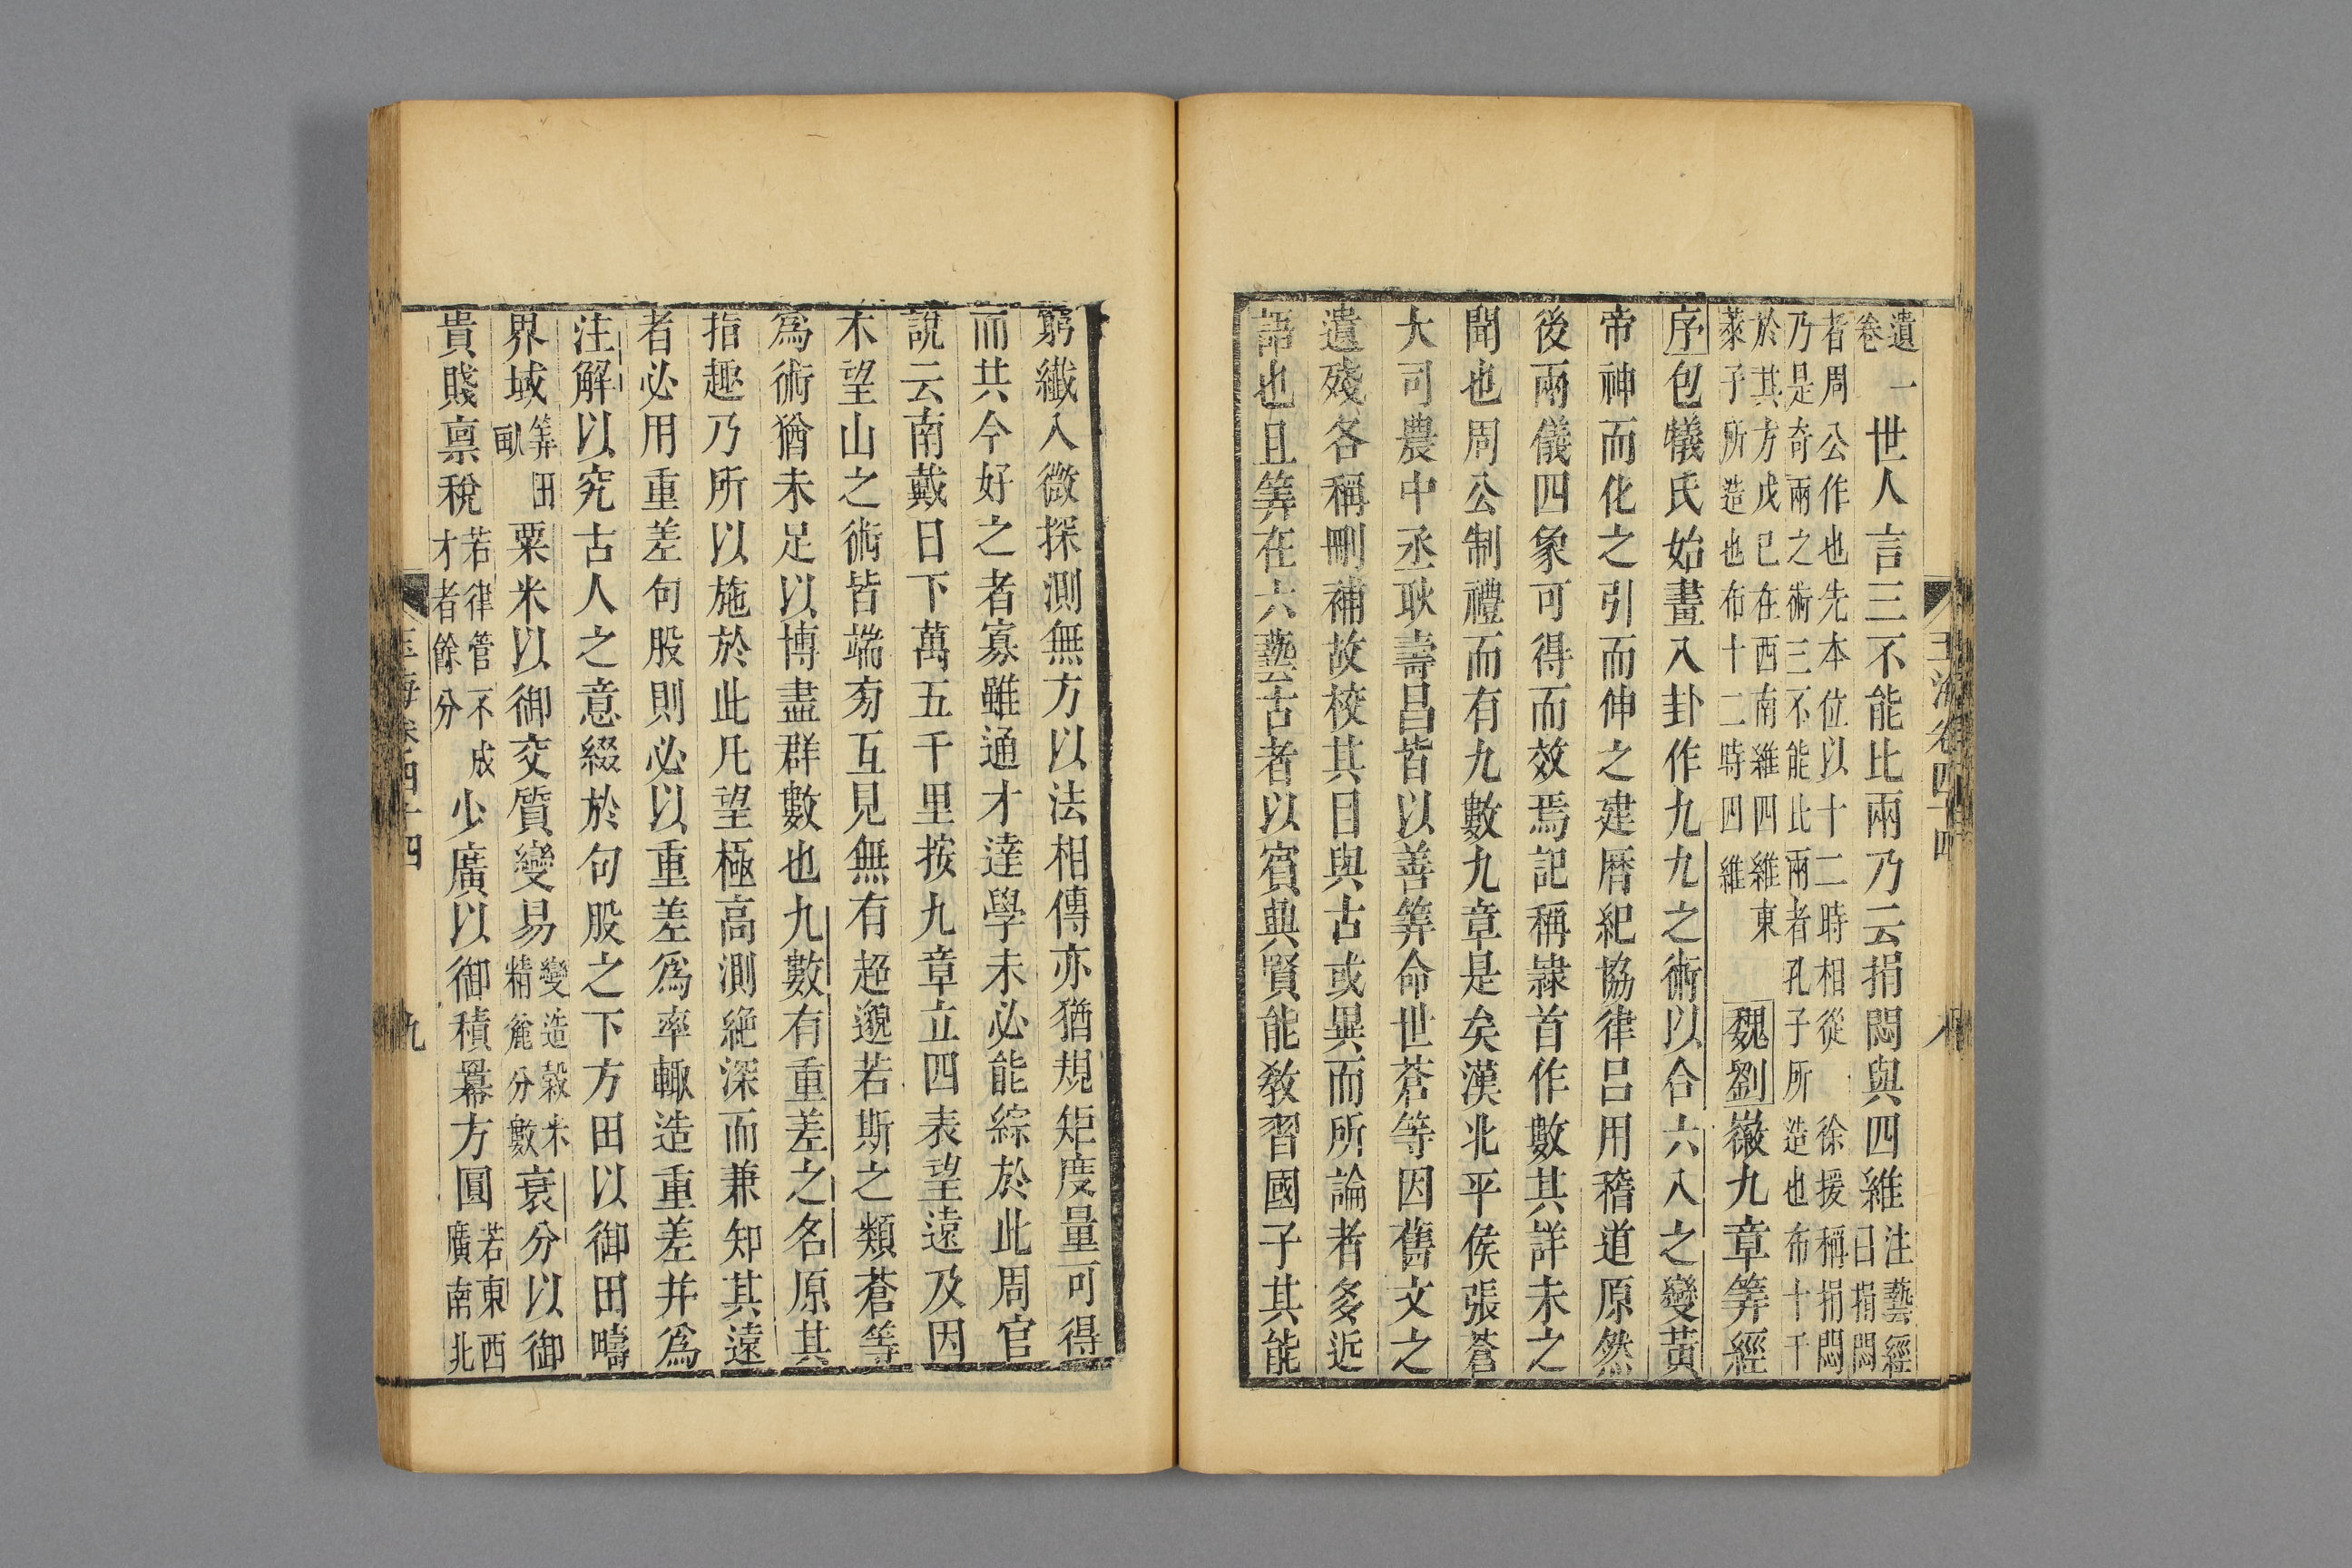 遺一卷世人言三不能比兩乃云捐悶與四維注藝經曰捐悶
者周公作也先本位以十二時相從徐援稱捐悶
乃是奇兩之術三不能比兩者孔子所造也布十干
於其方戊己在西南維四維東
萊子所造也布十二時四維魏劉徽九章筭經
序包犧氏始畫八卦作九九之術以合六爻之變黃
帝神而化之引而伸之建曆紀協律呂用稽道原然
後兩儀四象可得而效焉記稱隷首作數其詳未之
聞也周公制禮而有九數九章是矣漢北平侯張蒼
大司農中丞耿壽昌皆以善筭命世蒼等因舊文之
遺殘各稱刪補故校其目與古或異而所論者多近
語也且筭在六藝古者以賓興賢能教習國子其能
窮纖入微探測無方以法相傳亦猶規矩度量可得
而共今好之者寡雖通才達學未必能綜於此周官
說云南戴日下萬五千里按九章立四表望遠及因
木望山之術皆端旁互見無有超邈若斯之類蒼等
爲術猶未足以博盡群數也九數有重差之名原其
指趣乃所以施於此凡望極高測絶深而兼知其遠
者必用重差句股則必以重差爲率輙造重差并爲
注解以究古人之意綴於句股之下方田以御田疇
界域筭田畞粟米以御交質變易變造穀米精麄分數衰分以御
貴賤禀稅若律管不成才者餘分少廣以御積羃方圓若東西廣南北
玉海卷四十四
八
玉海卷四十四
九